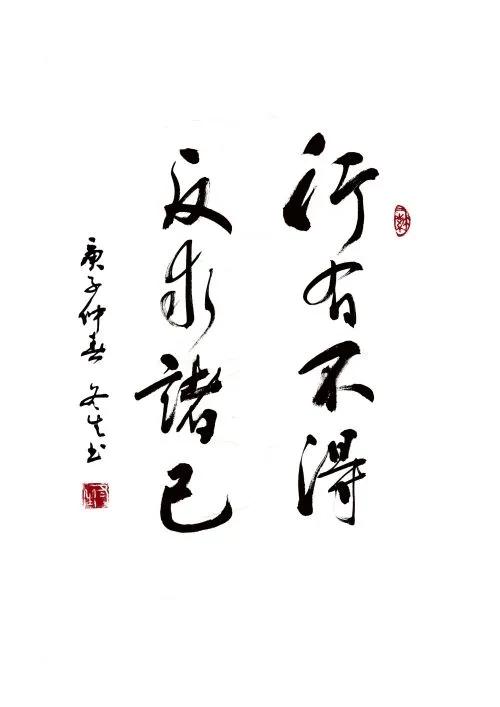 行有不得
反求諸己
庚子仲春 冬生书